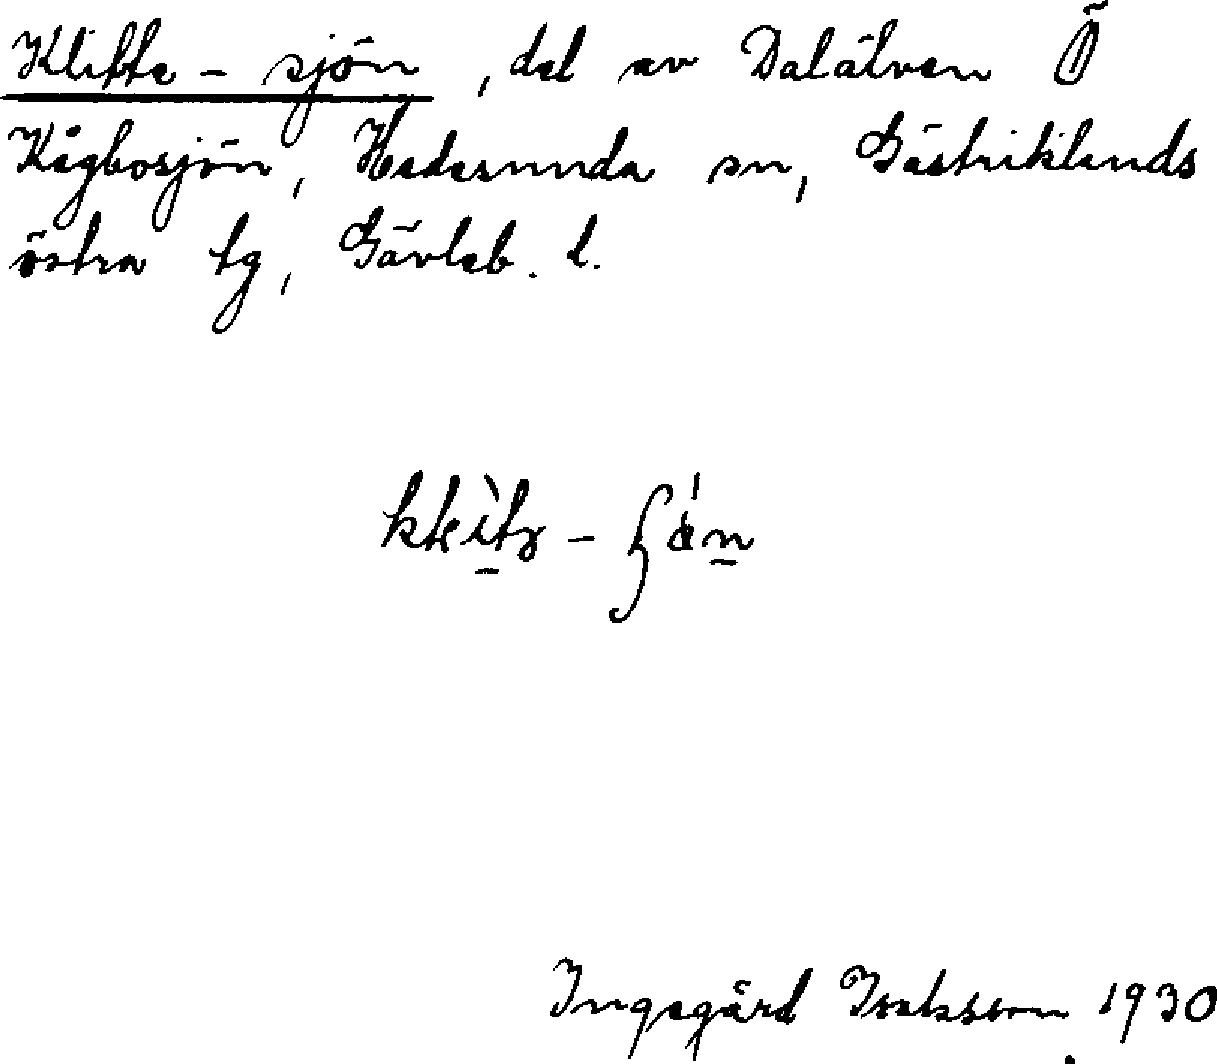 Klitte - sjön, del av Dalälven Ö
Kågbosjön, Hedesunda sn, Gästriklands
östra tg, Gävleb. l.
Ingegärd Isaksson 1930